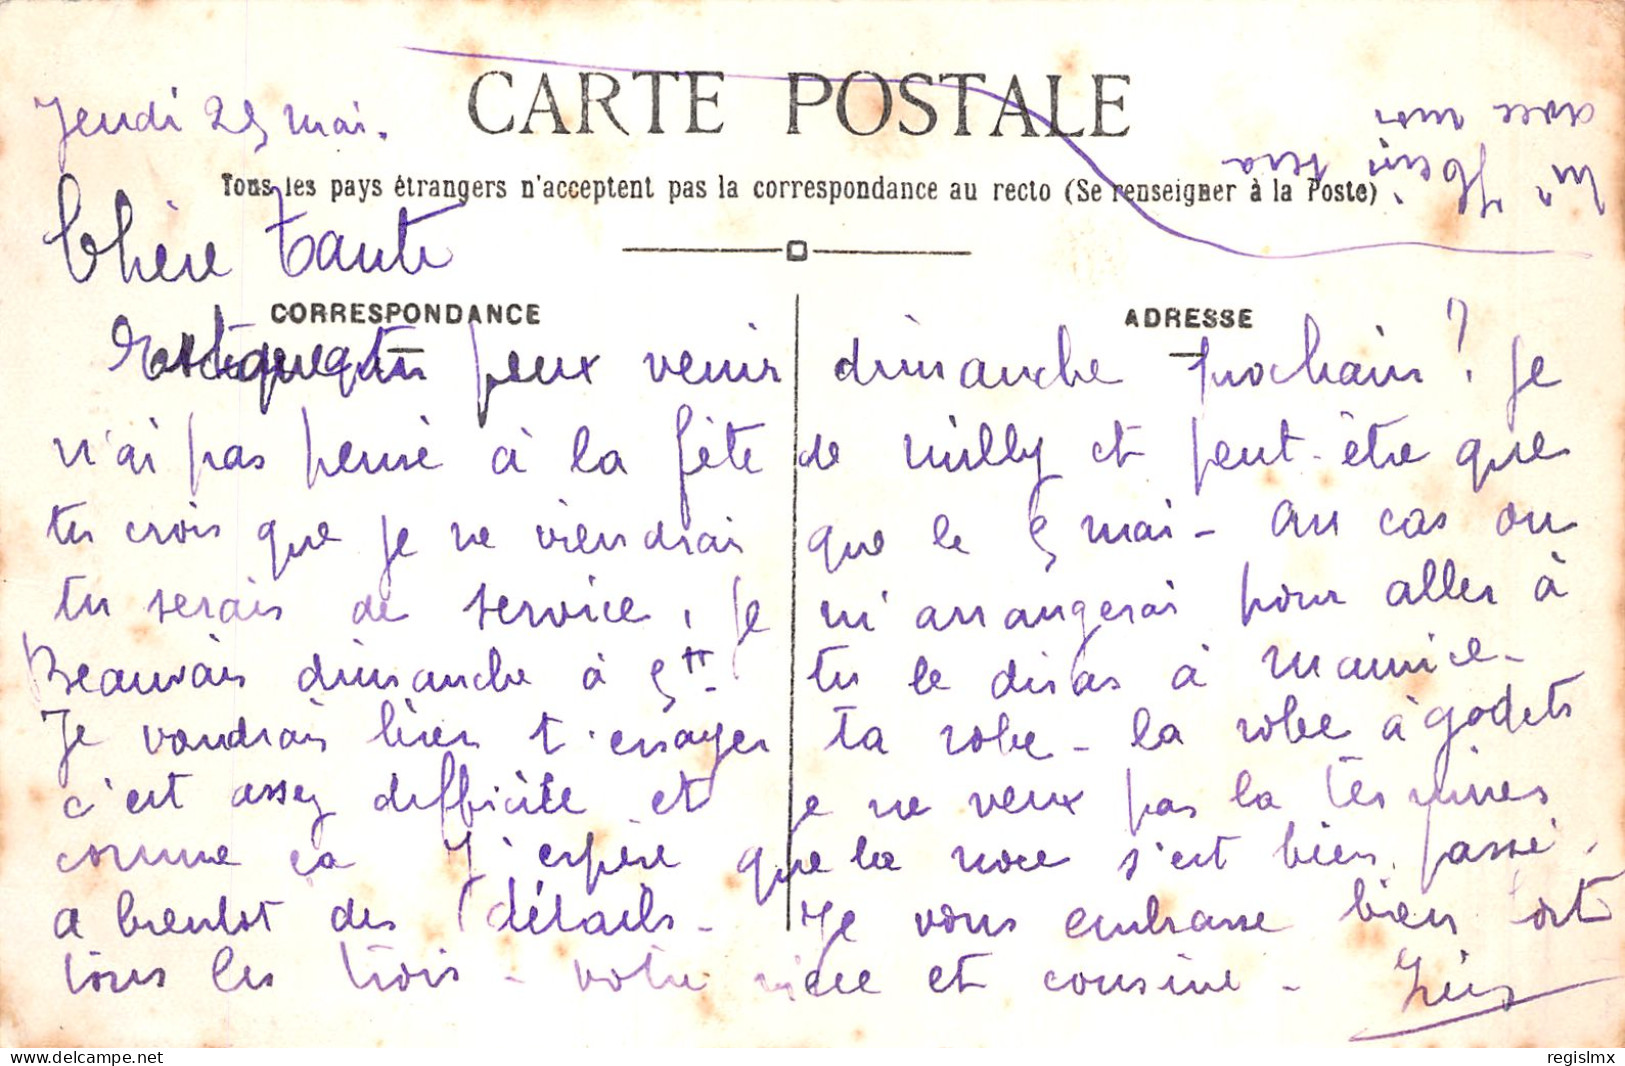 CARTE POSTALE
Jeudi 25 mai.
Tous les pays étrangers n'acceptent pas la correspondance au recto (Se renseigner à la Poste)
Chère Tante
CORRESPONDANCE
ADRESSE
Est-ce que tu peux venir dimanche prochain ? Je
n'ai pas pensé à la fête de Milly et peut-être que
tu crois que je ne viendrai que le 5 mai - Au cas ou
tu serais de service, je m'arrangerai pour aller à
Beauvais dimanche à 5H - tu le diras à Maurice -
Je voudrais bien t'essayer ta robe - la robe à godets
c'est assez difficile et je ne veux pas la terminer
comme ça J'espère que la noce s'est bien passé.
a bientôt des détails - Je vous embrasse bien fort
tous les trois - votre nièce et cousine -
sera
avec moi
regislmx